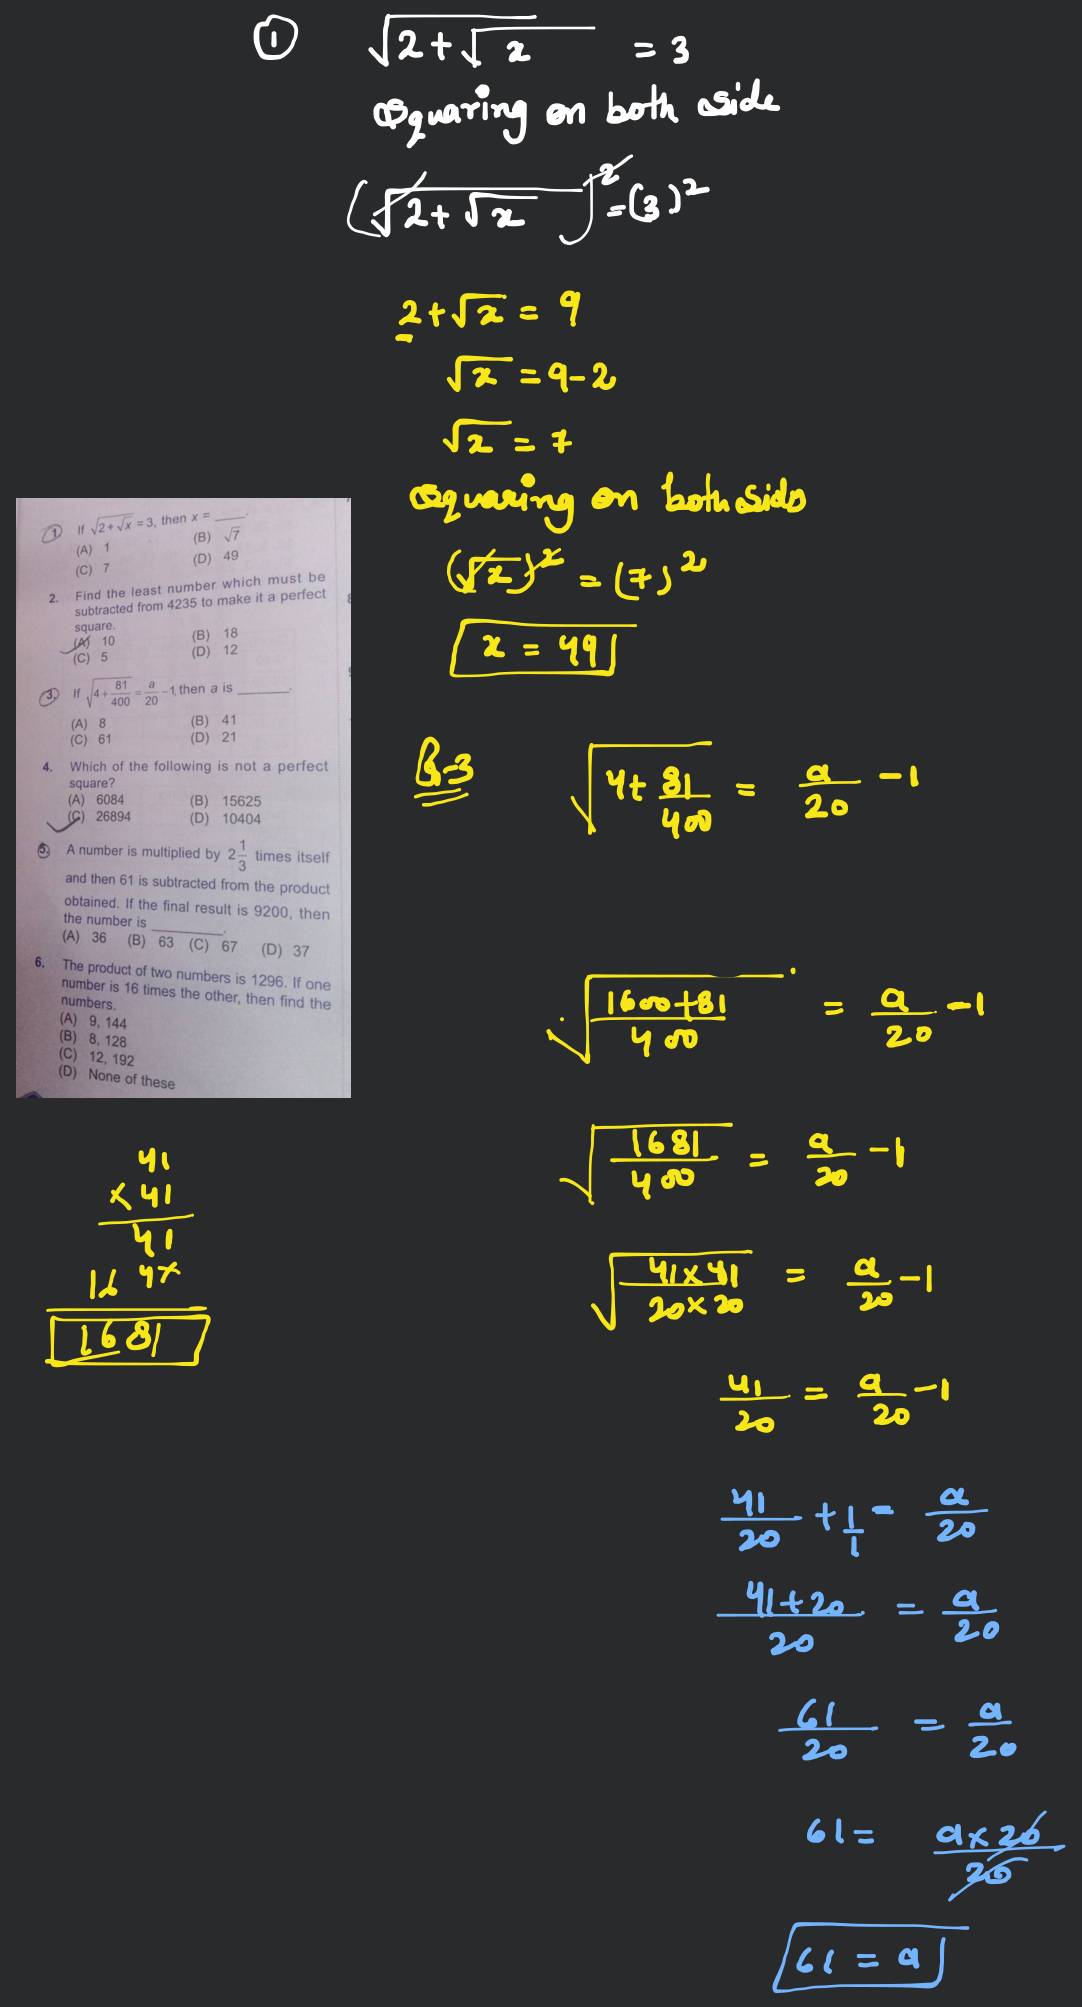 ① √2+√x = 3
Squaring on both side
(√2+√x)² = (3)²
2+√x = 9
√x = 9-2
√x = 7
Squaring on both side
(√x)² = (7)²
x = 49
1. If √2+√x = 3, then x = ____.
(A) 1 (B) √7
(C) 7 (D) 49
2. Find the least number which must be
subtracted from 4235 to make it a perfect
square.
(A) 10 (B) 18
(C) 5 (D) 12
3. If √4+81/400 = a/20 -1, then a is ____.
(A) 8 (B) 41
(C) 61 (D) 21
4. Which of the following is not a perfect
square?
(A) 6084 (B) 15625
(C) 26894 (D) 10404
5. A number is multiplied by 2 1/3 times itself
and then 61 is subtracted from the product
obtained. If the final result is 9200, then
the number is ____.
(A) 36 (B) 63 (C) 67 (D) 37
6. The product of two numbers is 1296. If one
number is 16 times the other, then find the
numbers.
(A) 9, 144
(B) 8, 128
(C) 12, 192
(D) None of these
Q-3 √4+81/400 = a/20 -1
√1600+81/400 = a/20 -1
√1681/400 = a/20 -1
√41×41/20×20 = a/20 -1
41/20 = a/20 -1
41/20 + 1/1 = a/20
41+20/20 = a/20
61/20 = a/20
61 = a×20/20
61 = a
41
×41
41
164×
1681